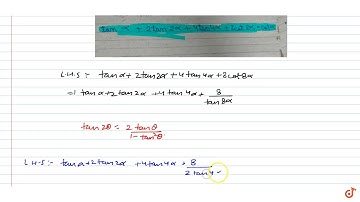 tan α + 2 tan 2α + 4 tan 4α + 8 cot 8α = cot α
L.H.S :- tan α + 2 tan 2α + 4 tan 4α + 8 cot 8α
=) tan α + 2 tan 2α + 4 tan 4α + 8 / tan 8α
tan 2θ = 2 tan θ / 1 - tan² θ
L.H.S :- tan α + 2 tan 2α + 4 tan 4α + 8 / 2 tan 4